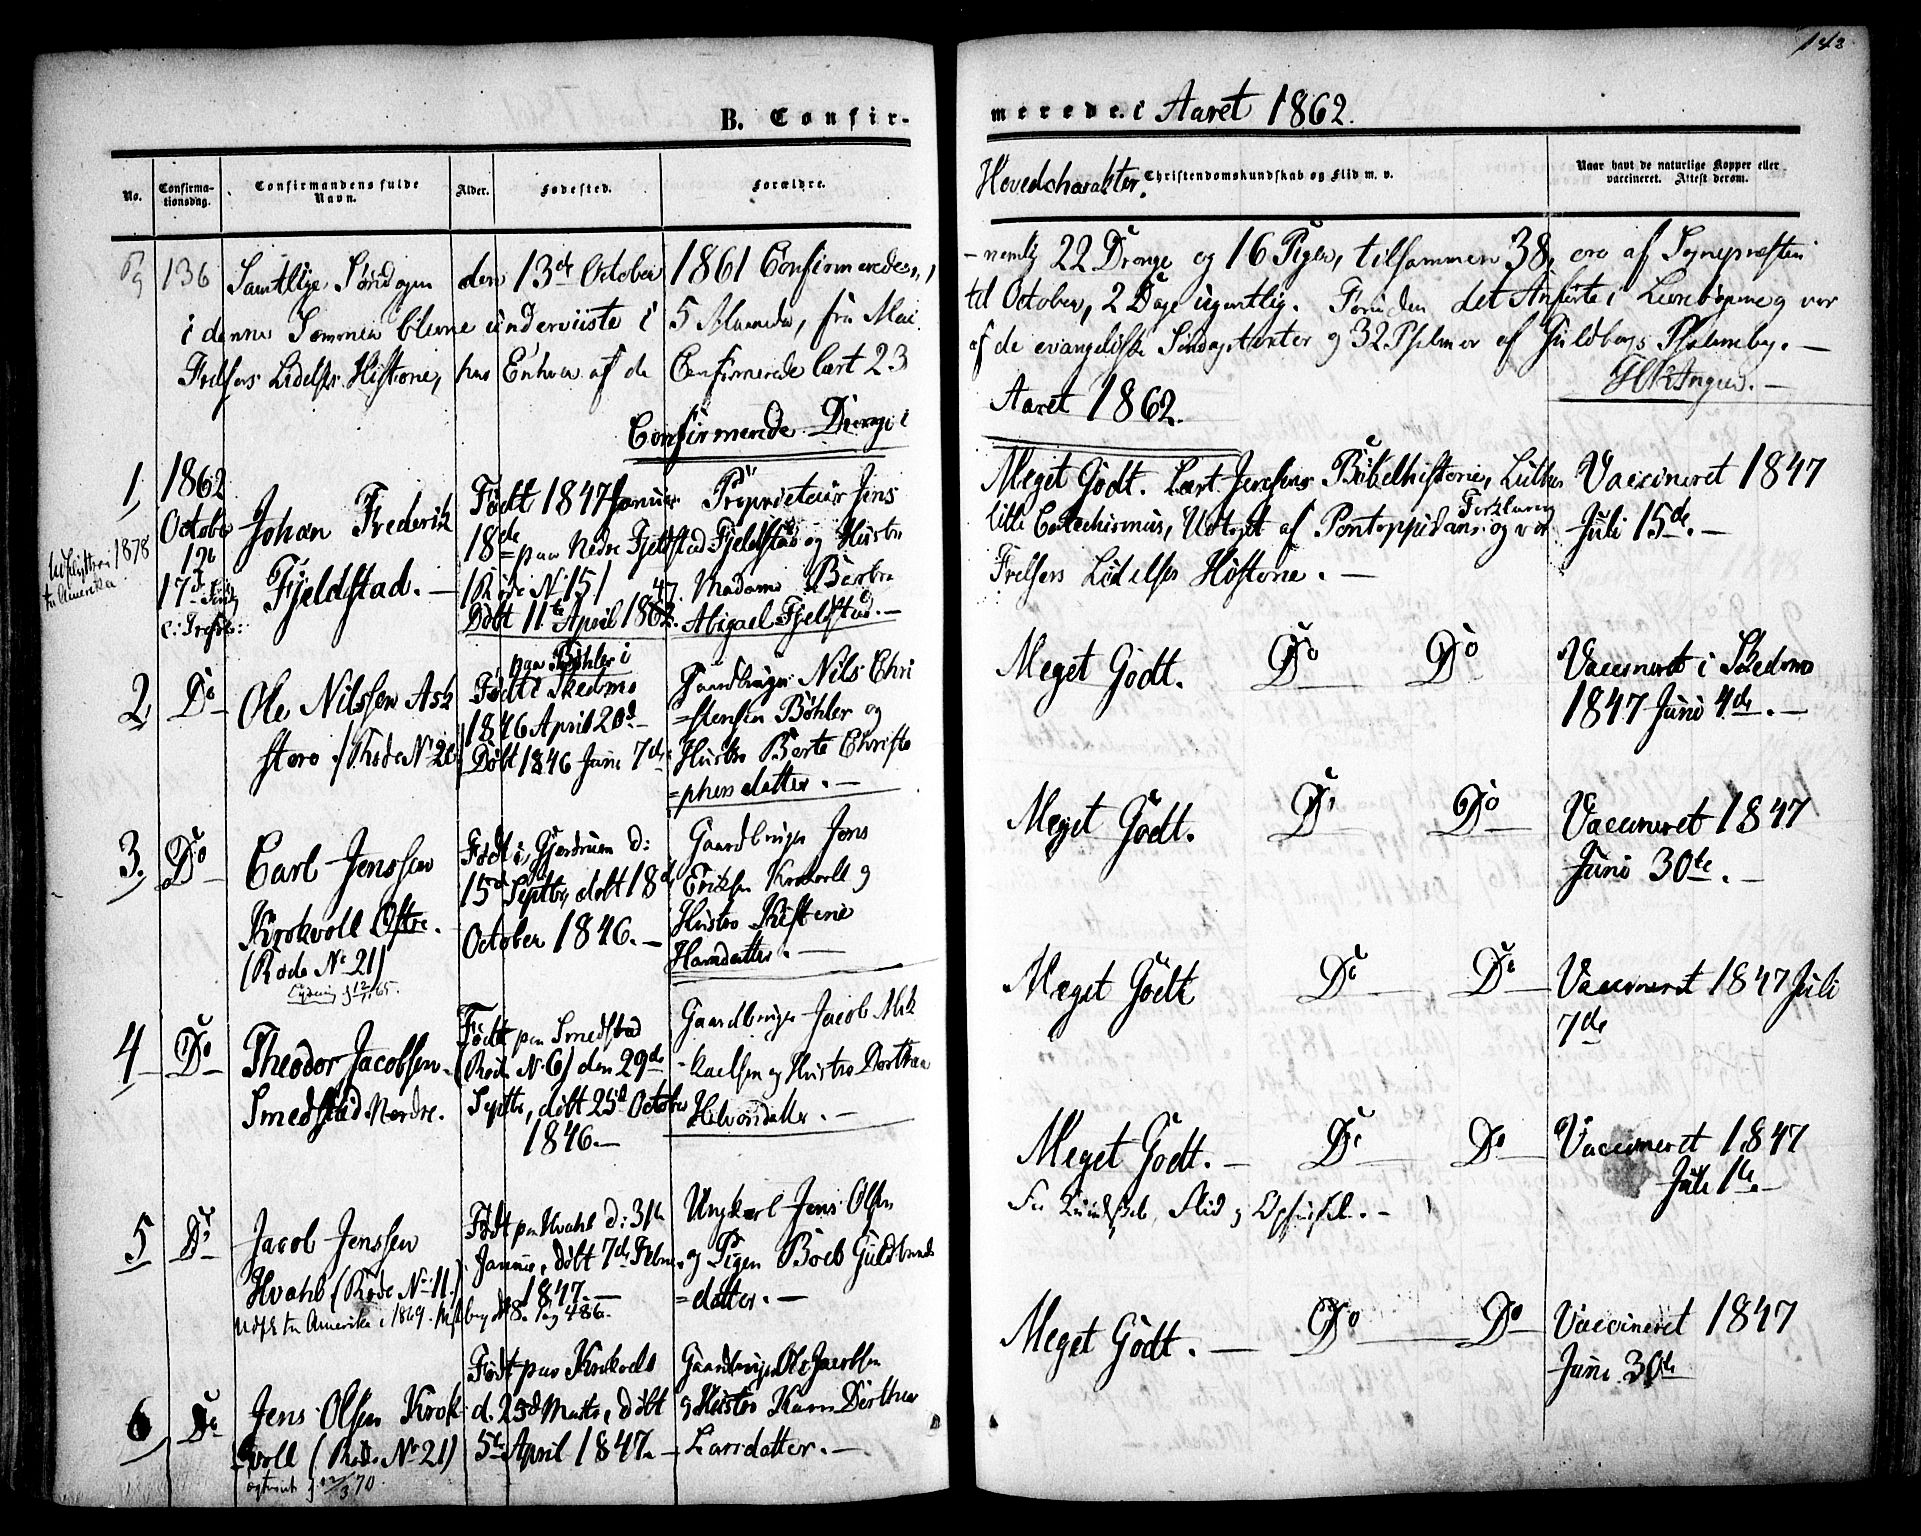 142
B. Confir-
merede. i Aaret 1862.
No.
Confirma-
tionsdag.
Confirmandens fulde
Navn.
Alder.
Fødested.
Forældre.
Hovedcharakter. Christendomskundskab og Flid m. v.
Naar havt de naturlige Kopper eller
vaccineret. Attest derom.
136 Samtlige Søndagen den 13de October 1861 Confirmerede,
i denne blevne underviiste i 5 Maaneder, fra Mai
Frelsers Lidelses Historie, har Enhver af de Confirmerede lært 23
Confirmerede Drenge i
- nemlig 22 Drenge og 16 Piger, tilsammen 38, ere af Sognepræsten
til October, 2 Dage ugentlig. Foruden det Anførte i og vor
af de evangeliske og 32 Psalmer af Guldbergs Psalmebog. —
Aaret 1862.
1,
1862
October
12
17de
Johan Frederik
Fjeldstad. —
Udflyttet 1878
til Amerika
Født 1847 Januar
18de paa Nedre Fjeldstad
(Rode No 15)
Døbt 11te April 1847.
Proprietair Jens
Fjeldstad og Hustro
Madame Berthe
Abigael Fjeldstad. —
Meget Godt. Lært Jensens Bibelhistorie, Luthers
lille Catechismus, Udtoget af Pontoppidans Forklaring og vor
Frelsers Lidelses Historie. —
Vaccineret 1847
Juli 15de. —
2,
Do
Ole Nilssen Ask
store (Rode No 20)
paa Bøhler i
Født i Skedsmo
1846 April 20de —
Døbt 1846 Juni 7de
Gaardbruger Nils Chri
=stensen Bøhler og
Hustro Berte Christo
=phersdatter. —
Meget Godt. Do Do
Vaccineret i Skedsmo
1847 Juni 4de. —
3.
Do
Carl Jenssen
Krokvoll Østre.
(Rode No 21)
Født i Gjerdrum d:
15de Septbr, døbt 18de
October 1846. —
Gaardbruger Jens
Eriksen Krokvoll og
Hustro Kistene
Hansdatter. —
Meget Godt. Do Do
Vaccineret 1847
Juni 30te. —
4
Do
Theodor Jacobsen
Smedstad Nordre.
Født paa Smedstad
(Rode No 6) den 29de
Septbr, døbt 25de October
1846. —
Gaardbruger Jacob Mik
-kaelsen og Hustro Dorthea
Halvorsdatter. —
Meget Godt Do Do
Vaccineret 1847 Juli
7de
5
Do
Jacob Jenssen
Hvahl (Rode No 11.)
Udfl. til Amerika i 1869. pag 486.
Født paa Hvahl d: 31te
Januar, døbt 7de Februar
1847. —
Ungkarl Jens Olsen
og Pigen Boel Guldbrands
=datter. —
Meget Godt. — Do Do
For Kundskab, Flid og Opførsel. —
Vaccineret 1847
Juli 1te —
6
Do
Jens Olsen Krok-
-voll (Rode No 21)
Født paa Krokvoll
d. 23de Marts, døbt
5te April 1847. —
Gaardbruger Ole Jacobsen
og Hustro Karen Dorthea
Larsdatter. —
Meget Godt. — Do Do
Vaccineret 1847
Juni 30te